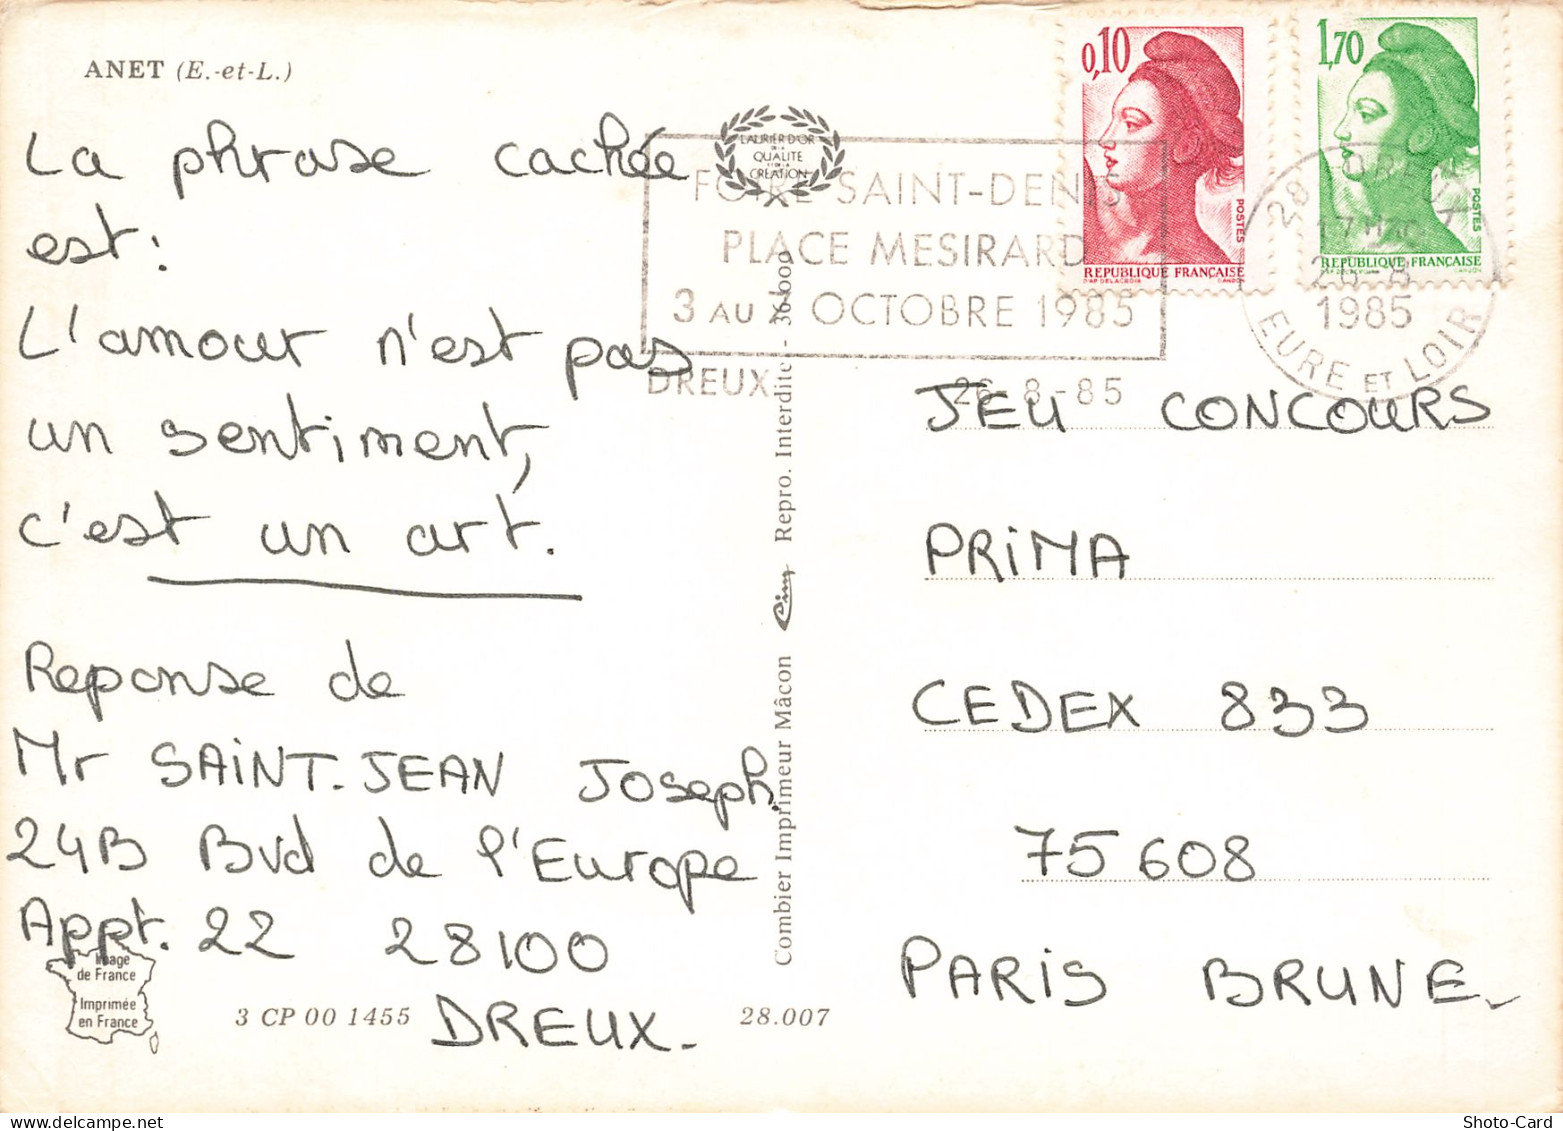 ANET (E.-et-L.)
La phrase cachée
est:
L'amour n'est pas
un sentiment,
c'est un art.
Reponse de
Mr SAINT-JEAN Joseph.
24B Bvd de l'Europe
Appt. 22 28100
DREUX.
Image
de France
Imprimée
en France
3 CP 00 1455
28.007
LAURIER D'OR
DE LA
QUALITÉ
ET DE LA
CRÉATION
Combier Imprimeur Mâcon Cim Repro. Interdite - 36.000
FOIRE SAINT-DENIS
PLACE MESIRARD
3 AU OCTOBRE 1985
DREUX 26-8-85
0,10
POSTES
REPUBLIQUE FRANÇAISE
D'AP DELACROIX GANDON
1,70
POSTES
REPUBLIQUE FRANÇAISE
D'AP DELACROIX GANDON
28 DREUX
17H
26-8
1985
EURE ET LOIR
JEU CONCOURS
PRIMA
CEDEX 833
75608
PARIS BRUNE
Shoto-Card